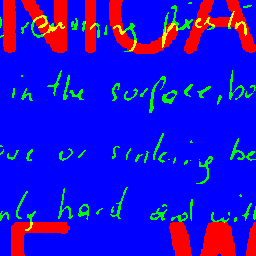 NICA
remaining fixes in
in the surface, bo
ove or sinking be
nly hard and with
E W